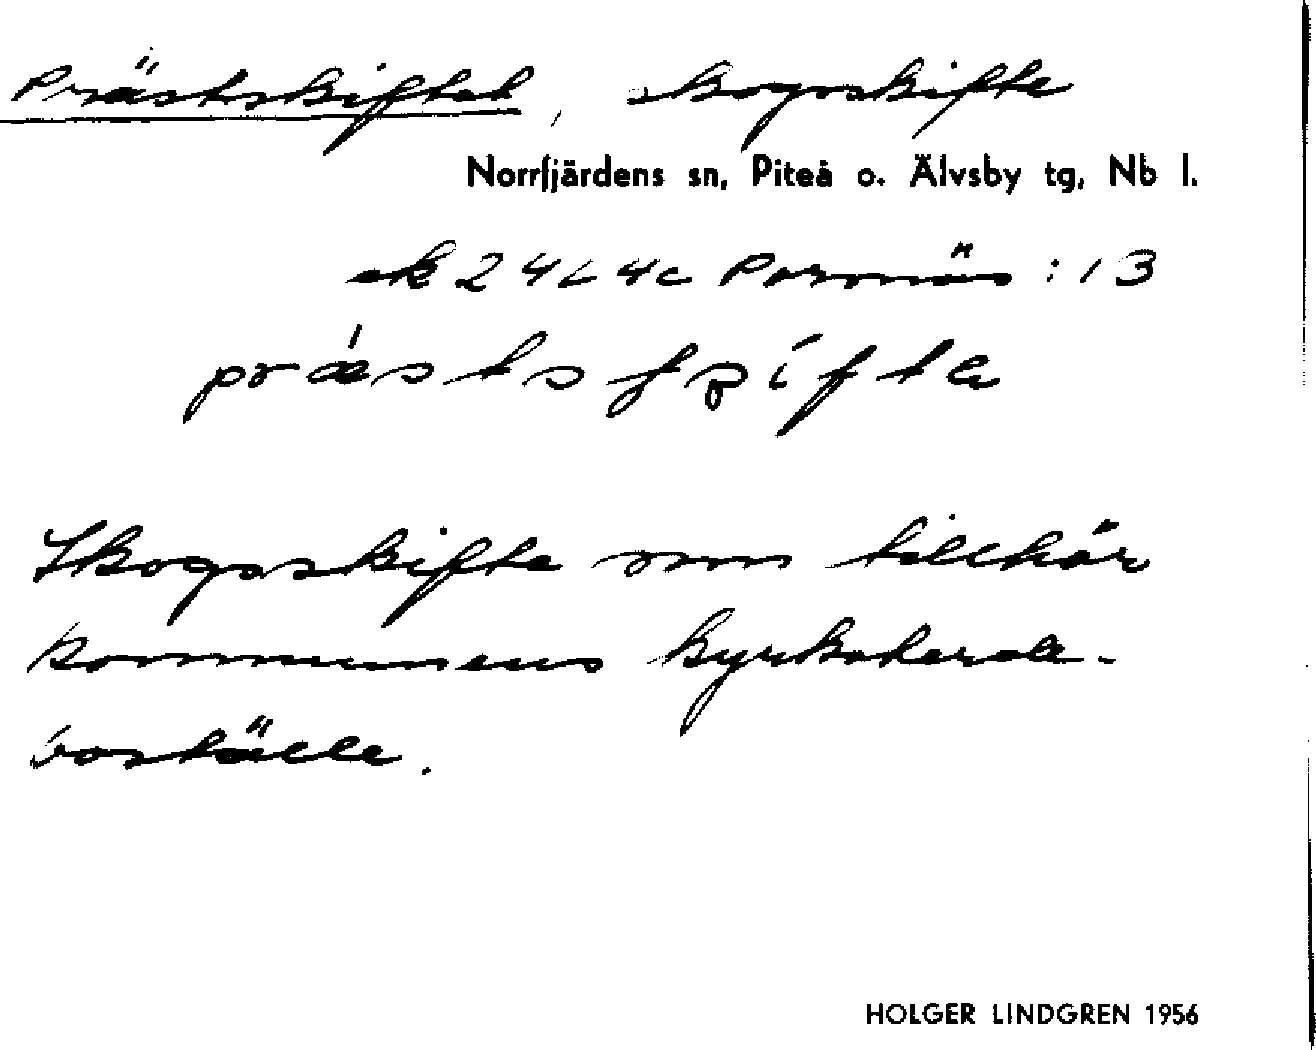 Prästskiftet, skogsskifte
Norrfjärdens sn, Piteå o. Älvsby tg, Nb l.
ek 24L4c Porsnäs :13
Skogsskifte som tillhör
kommunens kyrkoherde-
boställe.
HOLGER LINDGREN 1956